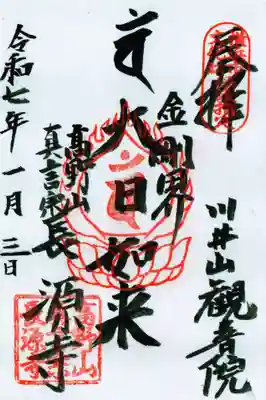 奉拝
川井山観音院
金剛界
大日如来
高野山
真言宗
長源寺
令和七年一月三日